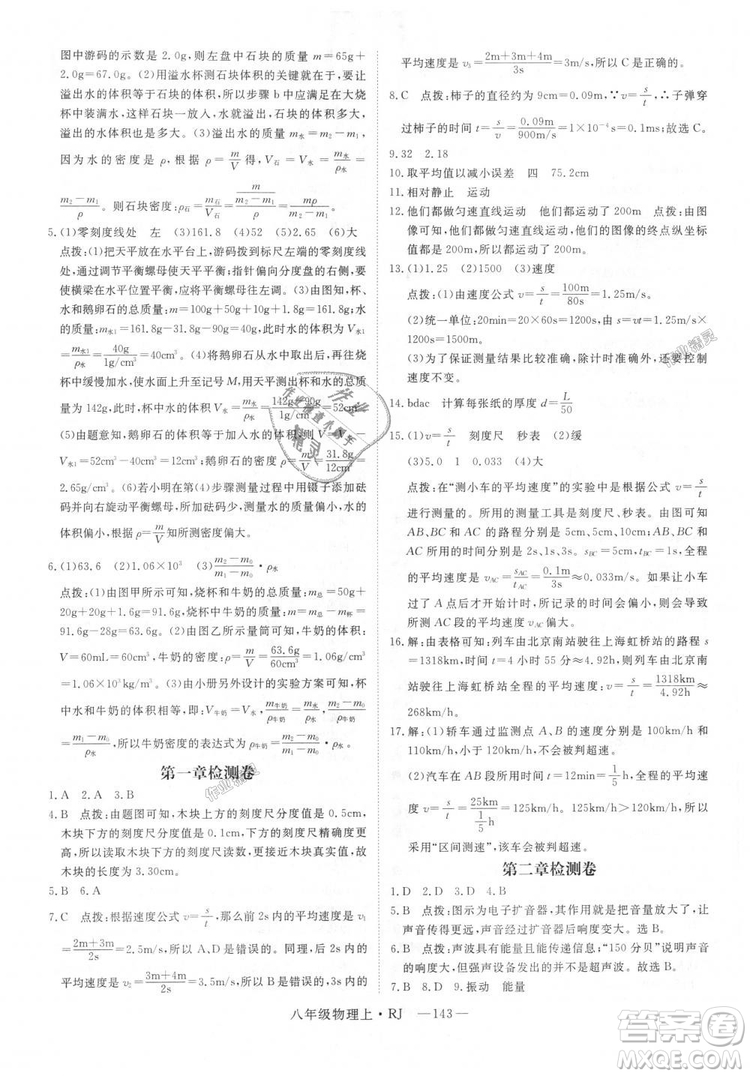 图中游码的示数是 2.0g,则左盘中石块的质量 m=65g+
2.0g=67.0g。(2)用溢水杯测石块体积的关键就在于要让
溢出水的体积等于块的体积,所以步骤 b 中应在大烧
杯中装满水,这样再放入石块时,水就会溢出,溢出的
水的体积也才会相等。(3)溢出水的质量 m水=m2-m1,
因为水的密度为 ρ,根据 ρ=m/V 可知,石块的体积 V石=
(m2-m1)/ρ。则石块密度:ρ石=m石/V石=m/((m2-m1)/ρ)=m/(m2-m1)ρ。
5.(1)零刻度线处 左 (3)161.8 (4)52 (5)2.65 (6)大
点拨:(1)把天平放在水平台上,游码拨到标尺左端零刻度
线处,通过调节平衡螺母使天平平衡;指针偏向分度盘的右侧,要
使横梁在水平位置平衡,应将平衡螺母向左调。(3)烧
杯、水和鹅卵石的总质量:m总=100g+50g+10g+1.8g=161.8g;
m水1=161.8g-90g-31.8g=40g;杯中水的体积
V水1=m水1/ρ水=40g/(1g/cm³)=40cm³。(4)将鹅卵石取出后,再往烧
杯中缓慢加水,使水面上升到记号 M,用天平测出杯和水的
总质量为 142g,杯中水的体积为 V水2=(142g-90g)/(1g/cm³)=52cm³
(5)由题意知,鹅卵石的体积等于加入水的体积,V=V水2-
V水1=52cm³-40cm³=12cm³,鹅卵石的密度 ρ=m/V=31.8g/12cm³=
2.65g/cm³。(6)若小明在第4步骤测量过程中用镊子添加砝
码并向右旋动平衡螺母,直至天平平衡,此时砝码的质量偏
大,根据公式 ρ=m/V 可知所测密度偏大。
6.(1)63.6 (2)1.06×10³ (3)(m2-m0)/(m1-m0)·ρ水
点拨:(1)由图甲所示可知,烧杯与牛奶的总质量:m总=50g
+20g+20g+1.6g=91.6g,烧杯中牛奶的质量:m=m总-m杯=
91.6g-28g=63.6g。(2)由图乙所示量筒可知,牛奶的体积:
V=60mL=60cm³,牛奶的密度:ρ=m/V=63.6g/60cm³=1.06g/cm³
=1.06×10³kg/m³。(3)由小册另外设计的实验可知,烧
杯中水和牛奶的体积相等,即:V牛奶=V水,即(m2-m0)/ρ牛奶=
(m1-m0)/ρ水,所以牛奶密度的表达式:ρ牛奶=(m2-m0)/(m1-m0)·ρ水。
第一章检测卷
1.A 2.A 3.B
4.B 点拨:由图可知,木块上方的刻度尺分度值是 0.5cm,
木块下方的刻度尺分度值是 0.1cm,下方的刻度尺精确度高,
所以读取木块下方的刻度尺示数,根据图示可知,此
木块的长度为 3.30cm。
5.B 6.A
7.C 点拨:根据速度公式 v=s/t,那么前 2s 内的平均速度是 v1
=(2m+3m)/2s=2.5m/s,所以 A、D 是错误的。同理,后 2s 内的
平均速度是 v2=(3m+4m)/2s=3.5m/s,则 B 是错误的,3s 内的
平均速度是 v3=(2m+3m+4m)/3s=3m/s,所以 C 是正确的。
8.C 点拨:柿子的直径约为 9cm=0.09m,∵v=s/t,∴子弹穿
过柿子的时间 t=s/v=0.09m/(900m/s)=1×10⁻⁴s,故选 C。
9.32 2.18
10.取平均值以减小误差 四 75.2cm
11.相对静止 运动
12.他们都做匀速直线运动 他们都运动了 200m 点拨:由图
像可知,他们都做匀速直线运动,由图像的终点纵坐标
可知,他们都运动了 200m。
13.(1)1.25 (2)1500 (3)速度
点拨:(1)由速度公式得,v=s/t=100m/80s=1.25m/s。
(2)统一单位:20min=20×60s=1200s,由 v=s/t 得,s=vt=1.25m/s×
1200s=1500m。
(3)为了保证测量结果比较准确,除计时外,还要控制
速度不变。
14.bdac 计算每张纸的厚度 d=L/50
15.(1)v=s/t 刻度尺 秒表 (2)缓
(3)5.0 1 0.033 (4)大
点拨:在“测小车的平均速度”的实验中,实验是根据公式 v=s/t
进行测量的。所用的测量工具是刻度尺、秒表。由图可知
AB、BC 和 AC 的路程分别是 5cm、5cm、10cm,对应的
AB、BC 和 AC 的时间分别是 2s、1s、3s。sBC=5cm,全程
的平均速度是 vAC=sAC/tAC=0.1m/3s≈0.033m/s。如果让小车
过了 A 点后才开始计时,计时晚,所用时间少,导致平均速
度偏大,所测 AC 段的平均速度 vAC 偏大。
16.解:由表格可知:列车由北京南站驶往上海虹桥站的路程 s
=1318km,时间 t=4 小时 55 分≈4.92h,所以列车由北京南
站驶往上海虹桥站全程的平均速度是 v=s/t=1318km/4.92h≈
268km/h。
17.解:(1)轿车通过监测点 A、B 的速度分别是 100km/h 和
110km/h,均小于 120km/h,所以均不会被判超速。
(2)汽车在 AB 段的时间为 t=12min=1/5h,平均速度为:v
=s/t=25km/(1/5h)=125km/h。125km/h>120km/h,所以
采用“区间测速”,该车会被判超速。
第二章检测卷
1.D 2.D 3.D 4.B
5.B 点拨:图示为电子扩音器,其作用是可以使声音的响度
变得很大,声音经过扩音器后,响度变大。故选 B。
6.B 点拨:声波具有能量且能传递信息;“150 分贝”说明声音
的响度大,能使人感到不适,使人烦躁,故选 B。
7.B 8.D 9.振动 能量
八年级物理上·RJ —143—
作业精灵
作业精灵
答案圈
MXQE.COM